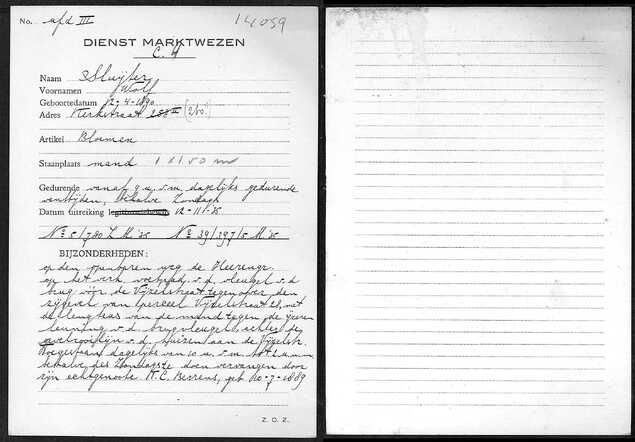 No. afd III
14059
DIENST MARKTWEZEN
C. H
Naam Sluijter
Voornamen Wolf
Geboortedatum 12-4-1890
Adres Kerkstraat 288 II (260)
Artikel Bloemen
Staanplaats mand 1 x 1.50 m
Gedurende vanaf 9 u. v.m. dagelijks gedurende
behalve Zondags
Datum uitreiking 12-11-'35
No 5/780 L.M. '35 No 39/397/5 M. '35
BIJZONDERHEDEN:
op den weg de Heerengr.
op het voetpad v.d. vleugel v.d.
brug vóor de Vijzelstraat tegenover den
zijgevel van perceel Vijzelstraat 28, met
de lengteas van de mand tegen de ijzeren
leuning v.d. brugvleugel, achter de
rooilijn v.d. huizen aan de Vijzelstr.
Toegestaan dagelijks van 10 u. v.m. tot 1 u. n.m.
behalve des Zondags te doen vervangen door
zijn echtgenoote K. C. Berrens, geb. 20-7-1889
Z. O. Z.